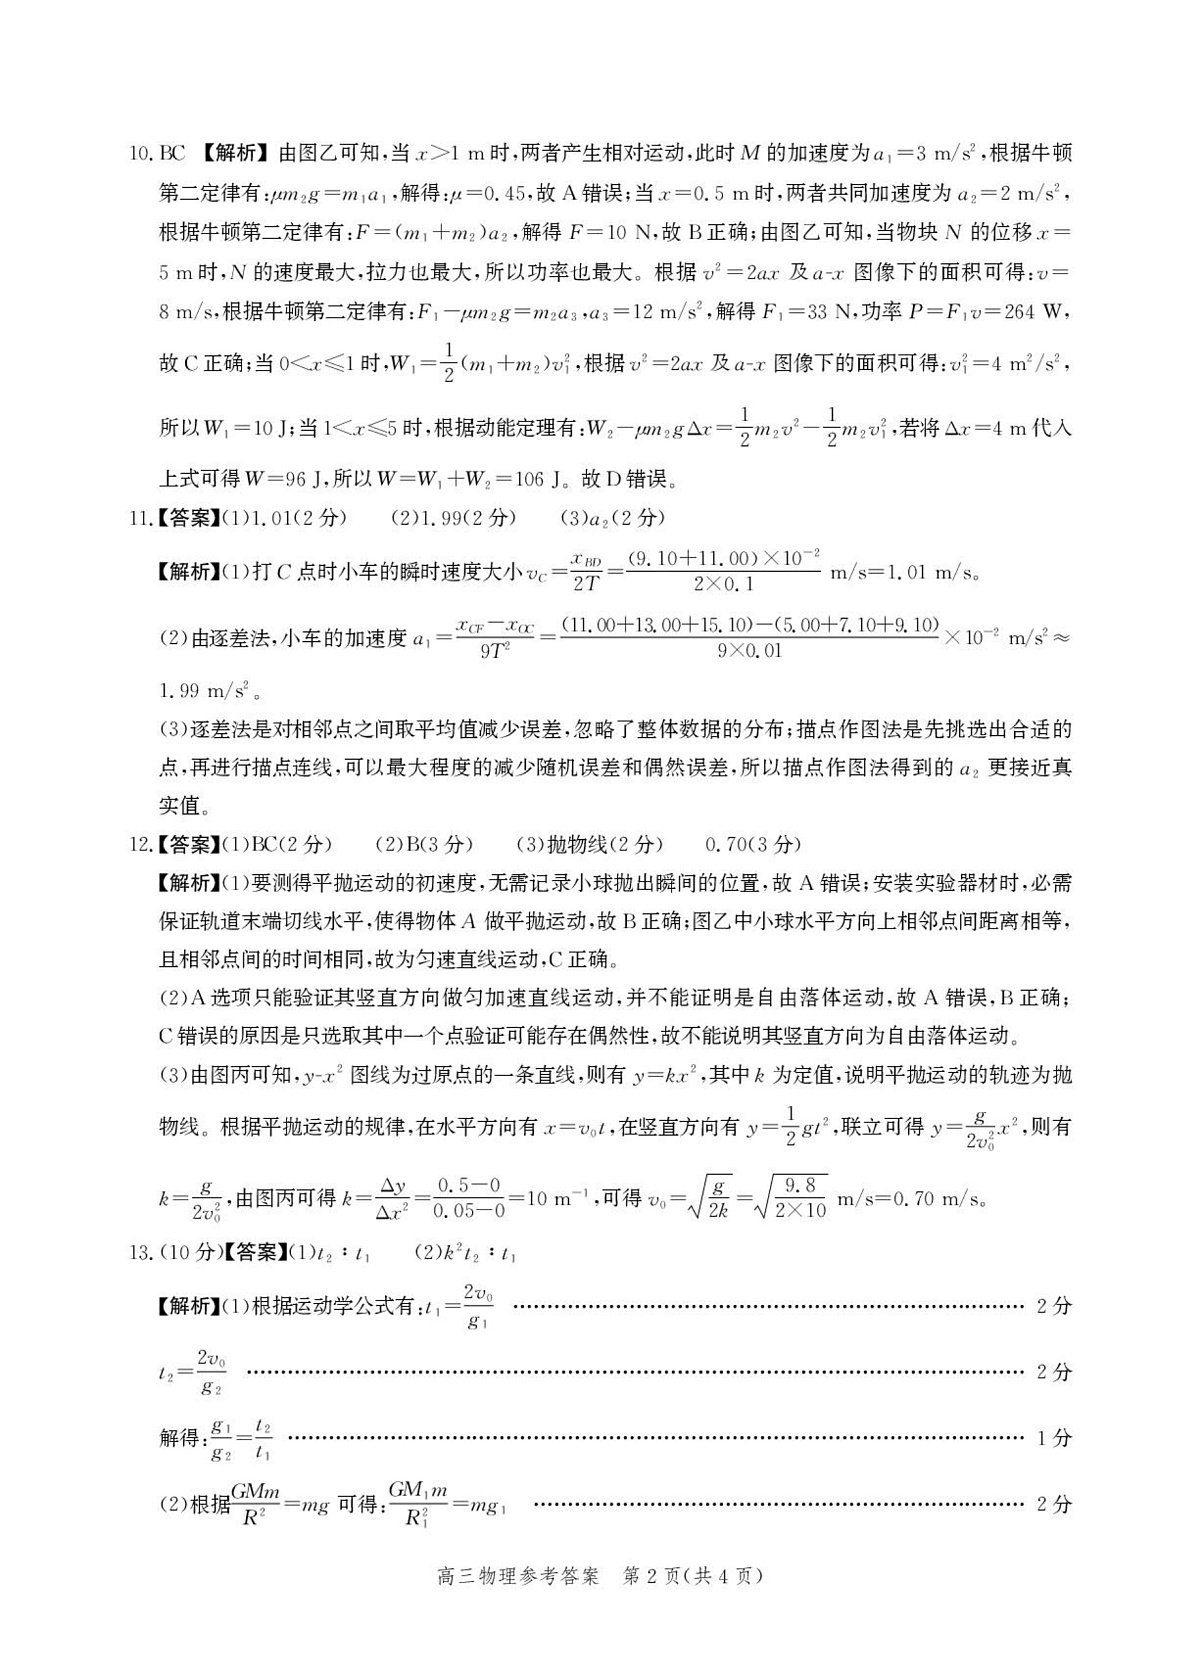 10. BC 【解析】由图乙可知,当 x>1 m 时,两者产生相对运动,此时 M 的加速度为 a₁=3 m/s²,根据牛顿
第二定律有:μm₂g=m₁a₁,解得:μ=0.45,故 A 错误;当 x=0.5 m 时,两者共同加速度为 a₂=2 m/s²,
根据牛顿第二定律有:F=(m₁+m₂)a₂,解得 F=10 N,故 B 正确;由图乙可知,当物块 N 的位移 x=
5 m 时,N 的速度最大,拉力也最大,所以功率也最大。根据 v²=2ax 及 a-x 图像下的面积可得:v=
8 m/s,根据牛顿第二定律有:F₁-μm₂g=m₂a₃,a₃=12 m/s²,解得 F₁=33 N,功率 P=F₁v=264 W,
故 C 正确;当 0<x≤1 时,W₁=\frac{1}{2}(m₁+m₂)v₁²,根据 v²=2ax 及 a-x 图像下的面积可得:v₁²=4 m²/s²,
所以 W₁=10 J;当 1<x≤5 时,根据动能定理有:W₂-μm₂gΔx=\frac{1}{2}m₂v²-\frac{1}{2}m₂v₁²,若将 Δx=4 m 代入
上式可得 W=96 J,所以 W=W₁+W₂=106 J。故 D 错误。
11.【答案】(1)1.01(2 分) (2)1.99(2 分) (3)a₂(2 分)
【解析】(1)打 C 点时小车的瞬时速度大小 v_C=\frac{x_{BD}}{2T}=\frac{(9.10+11.00)×10⁻²}{2×0.1} m/s=1.01 m/s。
(2)由逐差法,小车的加速度 a₁=\frac{x_{CF}-x_{OC}}{9T²}=\frac{(11.00+13.00+15.10)-(5.00+7.10+9.10)}{9×0.01}×10⁻² m/s²≈
1.99 m/s²。
(3)逐差法是对相邻点之间取平均值减少误差,忽略了整体数据的分布;描点作图法是先挑选出合适的
点,再进行描点连线,可以最大程度的减少随机误差和偶然误差,所以描点作图法得到的 a₂ 更接近真
实值。
12.【答案】(1)BC(2 分) (2)B(3 分) (3)抛物线(2 分) 0.70(3 分)
【解析】(1)要测得平抛运动的初速度,无需记录小球抛出瞬间的位置,故 A 错误;安装实验器材时,必需
保证轨道末端切线水平,使得物体 A 做平抛运动,故 B 正确;图乙中小球水平方向上相邻点间距离相等,
且相邻点间的时间相同,故为匀速直线运动,C 正确。
(2)A 选项只能验证其竖直方向做匀加速直线运动,并不能证明是自由落体运动,故 A 错误,B 正确;
C 错误的原因是只选取其中一个点验证可能存在偶然性,故不能说明其竖直方向为自由落体运动。
(3)由图丙可知,y-x² 图线为过原点的一条直线,则有 y=kx²,其中 k 为定值,说明平抛运动的轨迹为抛
物线。根据平抛运动的规律,在水平方向有 x=v₀t,在竖直方向有 y=\frac{1}{2}gt²,联立可得 y=\frac{g}{2v₀²}x²,则有
k=\frac{g}{2v₀²},由图丙可得 k=\frac{Δy}{Δx²}=\frac{0.5-0}{0.05-0}=10 m⁻¹,可得 v₀=\sqrt{\frac{g}{2k}}=\sqrt{\frac{9.8}{2×10}} m/s=0.70 m/s。
13.(10 分)【答案】(1)t₂∶t₁ (2)k²t₂∶t₁
【解析】(1)根据运动学公式有:t₁=\frac{2v₀}{g₁} …… 2 分
t₂=\frac{2v₀}{g₂} …… 2 分
解得:\frac{g₁}{g₂}=\frac{t₂}{t₁} …… 1 分
(2)根据\frac{GMm}{R²}=mg 可得:\frac{GM₁m}{R₁²}=mg₁ …… 2 分
高三物理参考答案 第 2 页(共 4 页)